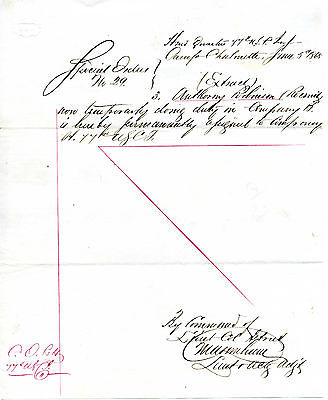 Head Quarters 77th U.S.C. Inf
Camp Chalmette, June 5th 1865
Special Orders
No 29.
(Extract)
3. Anthony Robinson (Recruit)
now temporarily doing duty in Company
is hereby permanently assigned to Company
77th U.S.C.I.
By Command of
Lieut Col
Lieut & Actg Adjt
C. O. Co
77th U.S.C.I.